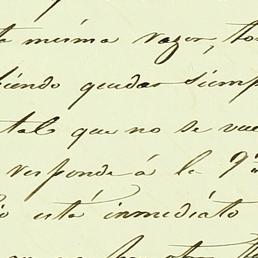 a misma razon, to
iendo quedar siemp
tal que no se vue
responde á la 9ª
io está inmediáto